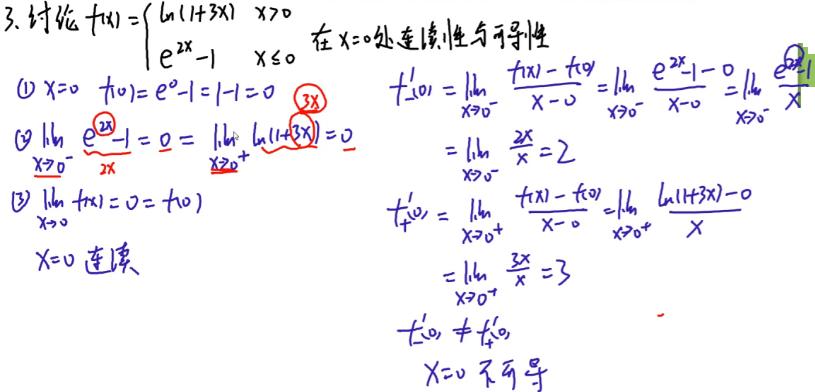 3. 讨论 f(x) = { ln(1+3x) x>0
e^{2x} -1 x≤0 在 x=0 处连续性与可导性
① x=0 f(0) = e^0 -1 = 1-1 = 0
② lim_{x→0^-} e^{2x} -1 = 0 = lim_{x→0^+} ln(1+3x) = 0
2x
3x
③ lim_{x→0} f(x) = 0 = f(0)
x=0 连续
f'_-(0) = lim_{x→0^-} \frac{f(x) - f(0)}{x-0} = lim_{x→0^-} \frac{e^{2x} -1 -0}{x-0} = lim_{x→0^-} \frac{e^{2x} -1}{x}
= lim_{x→0^-} \frac{2x}{x} = 2
f'_+(0) = lim_{x→0^+} \frac{f(x) - f(0)}{x-0} = lim_{x→0^+} \frac{ln(1+3x) -0}{x}
= lim_{x→0^+} \frac{3x}{x} = 3
f'_-(0) ≠ f'_+(0)
x=0 不可导